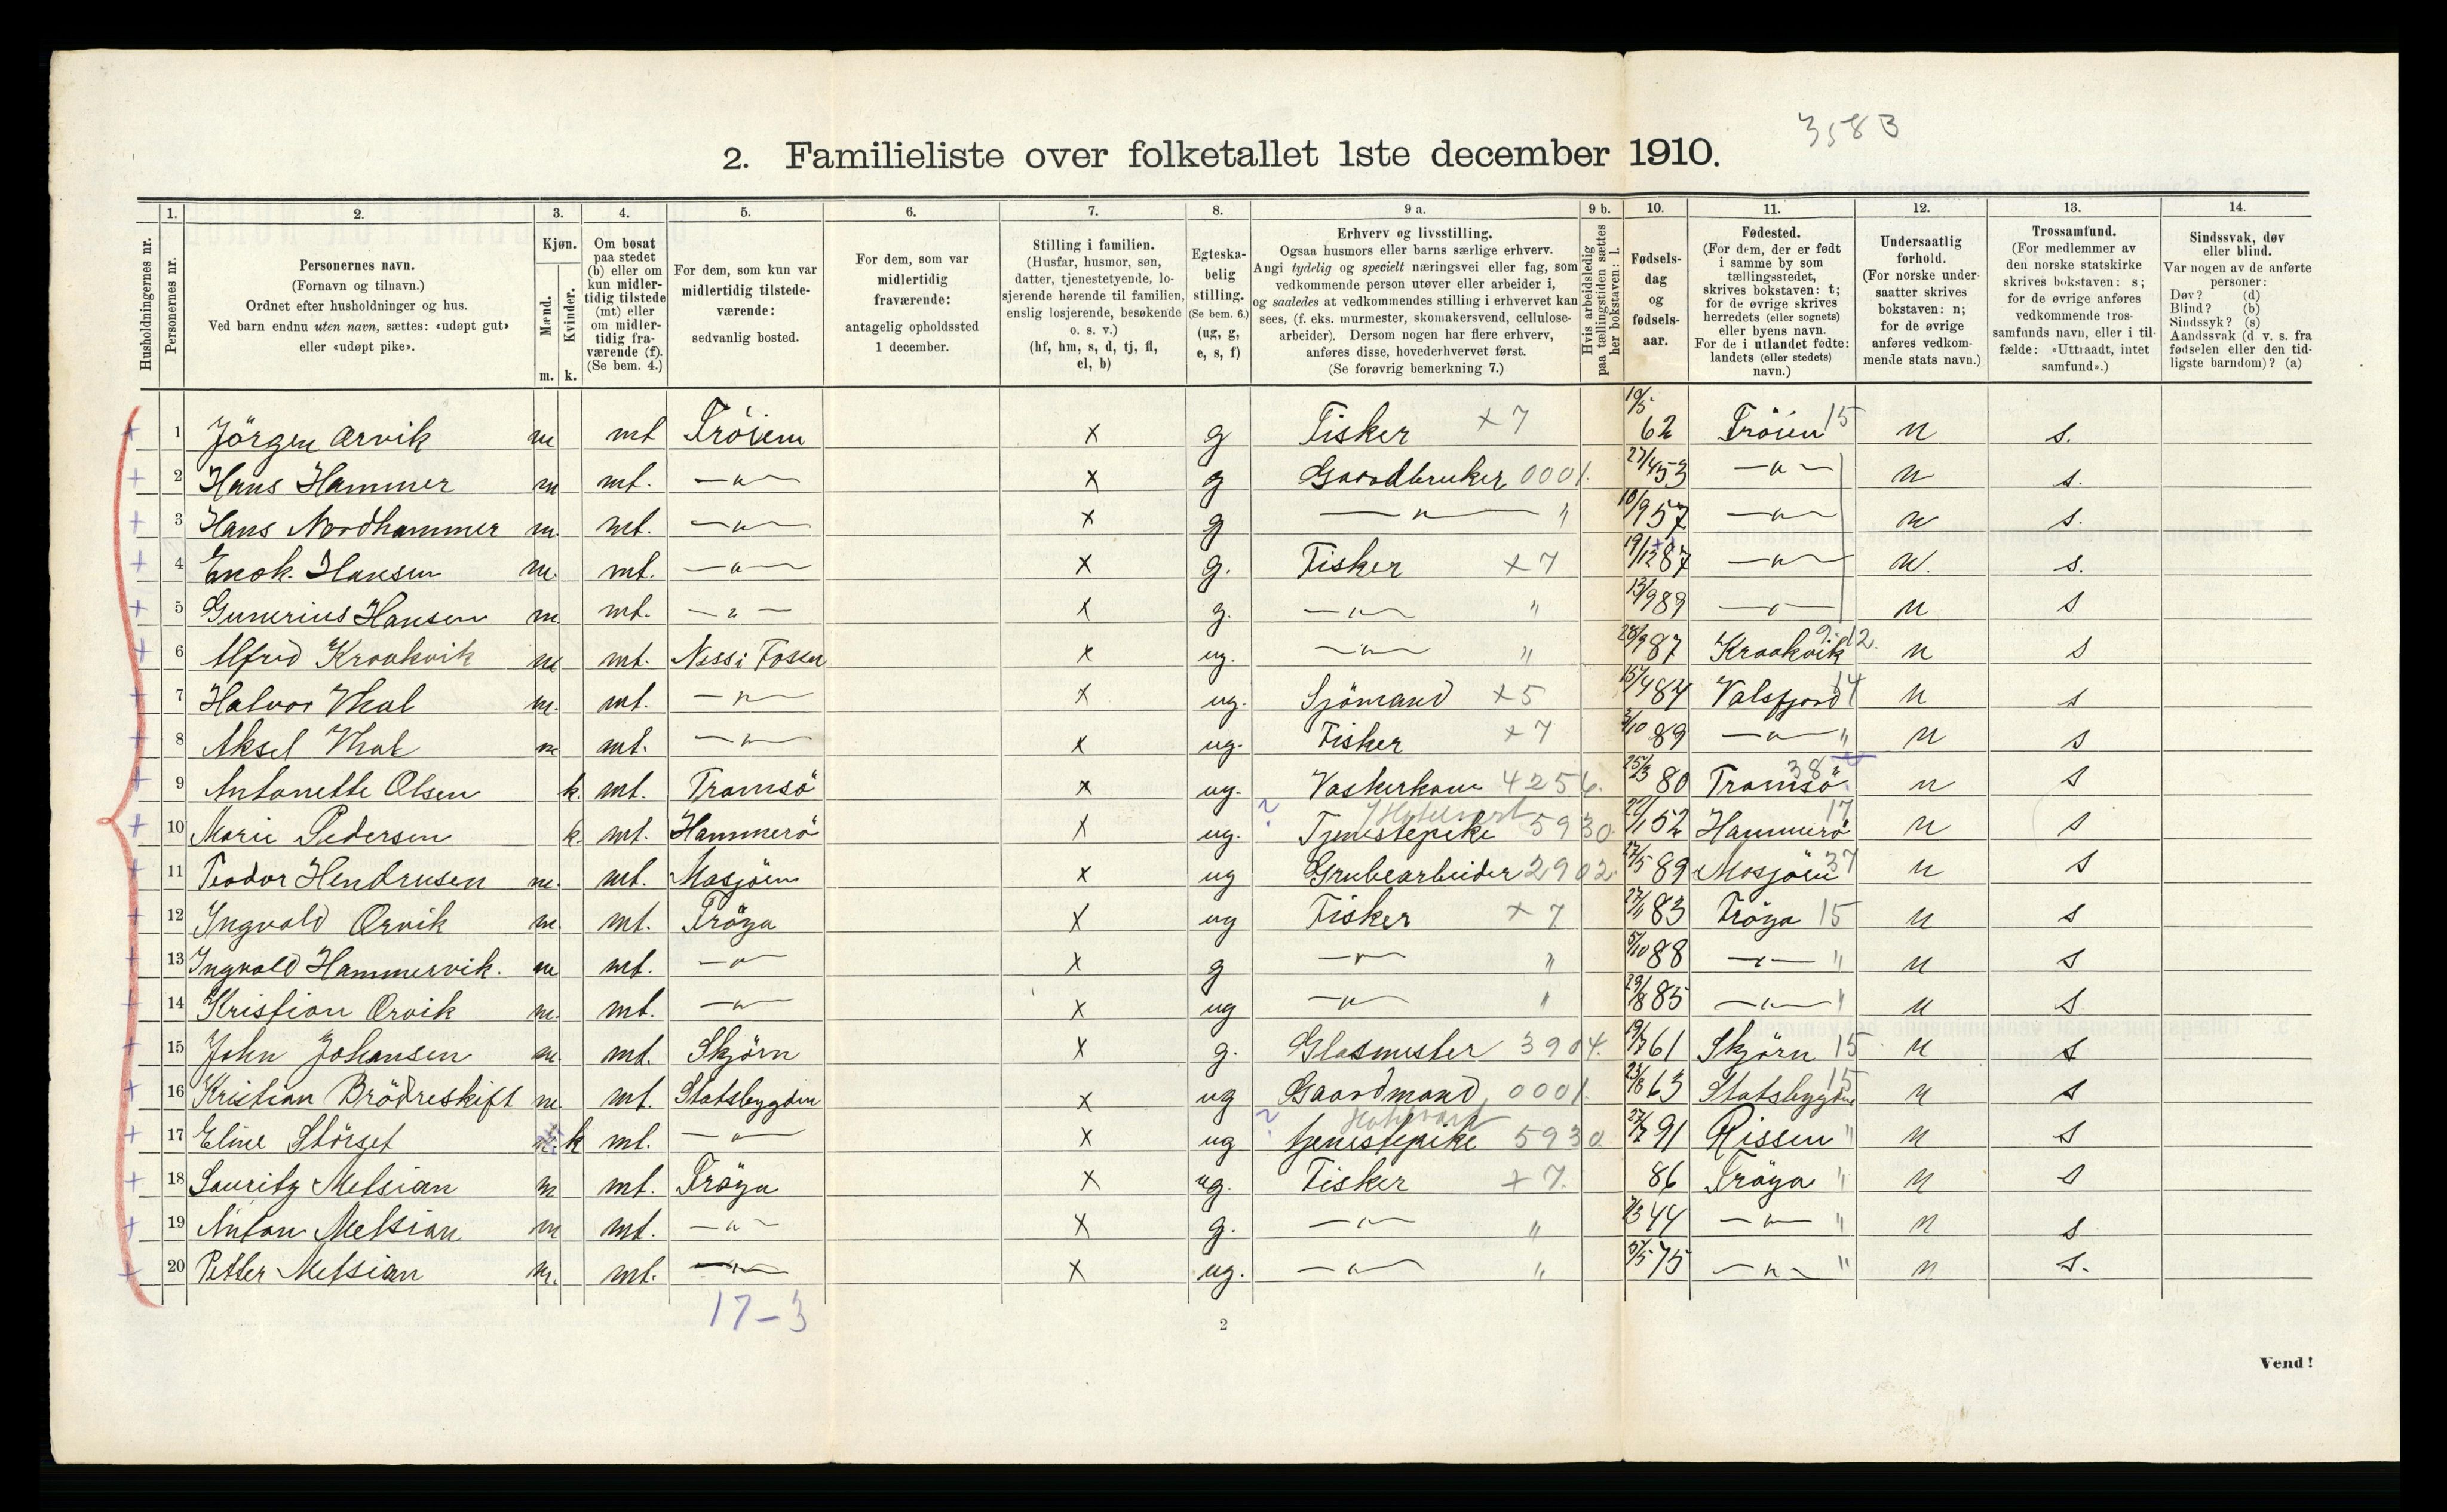 3583
2. Familieliste over folketallet 1ste december 1910.
Husholdningernes nr.
1. Personernes nr.
2. Personernes navn. (Fornavn og tilnavn.) Ordnet efter husholdninger og hus. Ved barn endnu uten navn, sættes: «udøpt gut» eller «udøpt pike».
3. Kjøn. Mænd. m. Kvinder. k.
4. Om bosat paa stedet (b) eller om kun midlertidig tilstede (mt) eller om midlertidig fraværende (f). (Se bem. 4.)
5. For dem, som kun var midlertidig tilstedeværende: sedvanlig bosted.
6. For dem, som var midlertidig fraværende: antagelig opholdssted 1 december.
7. Stilling i familien. (Husfar, husmor, søn, datter, tjenestetyende, losjerende hørende til familien, enslig losjerende, besøkende o. s. v.) (hf, hm, s, d, tj, fl, el, b)
8. Egteskabelig stilling. (Se bem. 6.) (ug, g, e, s, f)
9 a. Erhverv og livsstilling. Ogsaa husmors eller barns særlige erhverv. Angi tydelig og specielt næringsvei eller fag, som vedkommende person utøver eller arbeider i, og saaledes at vedkommendes stilling i erhvervet kan sees, (f. eks. murmester, skomakersvend, cellulosearbeider). Dersom nogen har flere erhverv, anføres disse, hovederhvervet først. (Se forøvrig bemerkning 7.)
9 b. Hvis arbeidsledig paa tællingstiden sættes her bokstaven: l.
10. Fødselsdag og fødselsaar.
11. Fødested. (For dem, der er født i samme by som tællingsstedet, skrives bokstaven: t; for de øvrige skrives herredets (eller sognets) eller byens navn. For de i utlandet fødte: landets (eller stedets) navn.)
12. Undersaatlig forhold. (For norske undersaatter skrives bokstaven: n; for de øvrige anføres vedkommende stats navn.)
13. Trossamfund. (For medlemmer av den norske statskirke skrives bokstaven: s; for de øvrige anføres vedkommende trossamfunds navn, eller i tilfælde: «Uttraadt, intet samfund».)
14. Sindssvak, døv eller blind. Var nogen av de anførte personer: Døv? (d) Blind? (b) Sindssyk? (s) Aandssvak (d. v. s. fra fødselen eller den tidligste barndom)? (a)
+ 1 Jörgen Ørvik m mt Fröien x g Fisker +7 19/5 62 Fröien 15 n s.
+ 2 Hans Hammer m mt. —"— x g Gaardbruker 0001. 27/4 53 —"— n s.
+ 3 Hans Nordhammer m. mt. —"— x g —"— " 10/9 57 —"— n s.
+ 4 Enok Hansen m. mt. —"— x g. Fisker +7 19/12 87 —"— n. s.
+ 5 Gunerius Hansen m mt. —"— x g. —"— " 13/9 89 —"— n s
+ 6 Alfred Kraakvik m mt. Næs i Fosen x ug. —"— " 28/9 87 Kraakvik 12. n s
+ 7 Halvor Thal m. mt. —"— x ug. Sjömand +5 15/4 84 Valsfjord 14 n s
+ 8 Aksel Thal m mt. —"— x ug. Fisker +7 3/10 89 —"— " n s
+ 9 Antonette Olsen k. mt. Tromsö x ug. Vaskerkone 4256. 25/3 80 Tromsö 38 n s
+ 10 Marie Pedersen k. mt. Hammerö x ug. ? Tjenestepike Hotelvert 5930. 22/1 52 Hammerö 17 n s
+ 11 Teodor Hendriksen m. mt. Mosjöen x ug Grubearbeider 2902. 27/5 89 Mosjöen 37 n s
+ 12 Ingvald Ørvik m. mt. Fröya x ug Fisker +7 27/11 83 Fröya 15 n s
+ 13 Ingvald Hammervik. m mt. —"— x g —"— " 5/10 88 —"— " n s
+ 14 Kristian Ørvik m. mt. —"— x ug —"— " 29/8 85 —"— " n s
+ 15 John Johansen m. mt. Skjörn x g. Glasmester 3904. 19/7 61 Skjörn 15 n s
+ 16 Kristian Brödreskift m mt. Statsbygden x ug Gaardmand 0001. 23/8 63 Statsbygden 15 n s
+ 17 Eline Störset k mt. —"— x ug ? tjenestepike Hotelvert 5930. 27/7 91 Rissen " n s
+ 18 Lauritz Metsian m mt. Fröya x ug. Fisker +7. 86 Fröya " n s
+ 19 Anton Metsian m mt. —"— x g. —"— " 7/3 44 —"— " n s
+ 20 Petter Metsian m. mt. —"— x ug. —"— " 5/5 75 —"— " n s.
17-3
2
Vend!